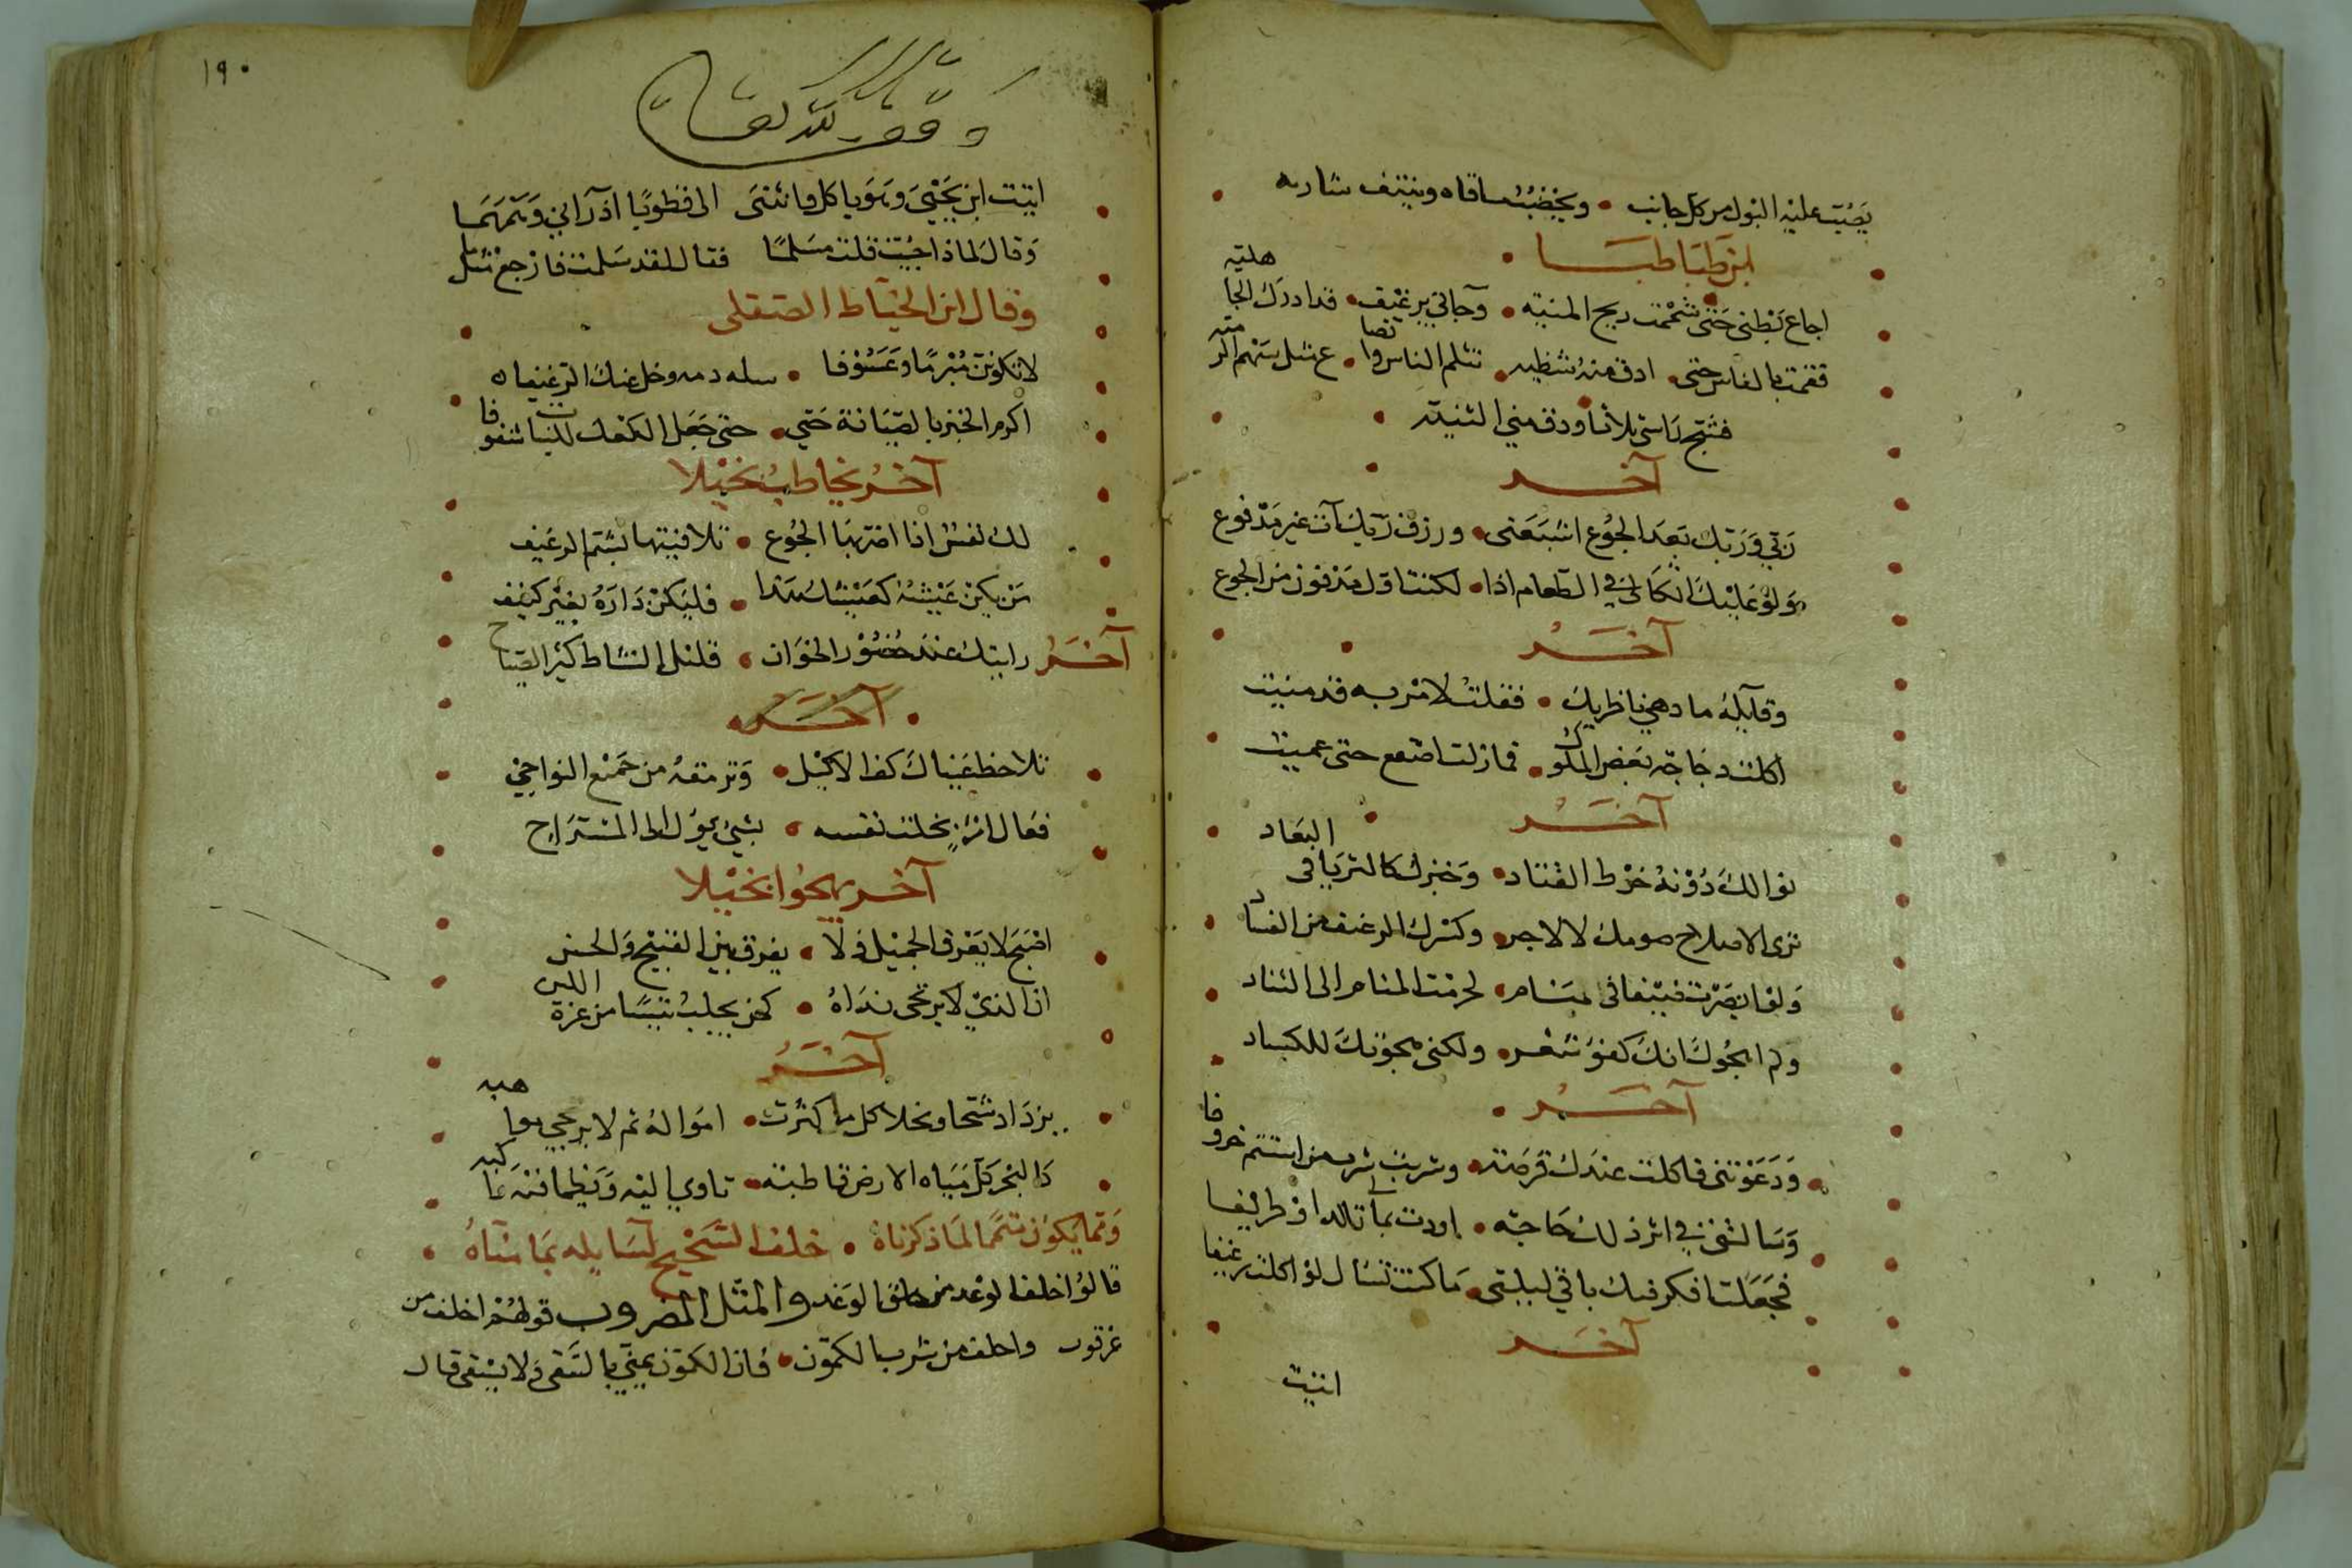 يصبّ عليه البول من كل جانب • ويخضب ساقاه وينتف شاربه
ابن طباطبا
اجاع بطني حتى شممت ريح المنيه • وجاني برغيف • قد ادرك الجاهليه
فقمت بالفاس حتى • ادق منه شظيه • تثلم الناس وانصا • ع مثل سهم الرميه
فشج راسي ثلاثا ودق مني الثنيه
آخر
ربي وربك بعد الجوع اشبعني • ورزق ربك آت غير مدفوع
ولو عليك اتكالي في الطعام اذا • لكنت اول مدفون من الجوع
آخر
وقايلة ما دهى ناظريك • فقلت لامر به قد منيت
اكلت دجاجة بعض الملوك • فمازلت اصفع حتى عميت
آخر
نوالك دونه خرط القتاد • وخبزك كالثريا في البعاد
ترى الاصلاح صومك لا لاجر • وكسرك الرغيف من الفساد
ولو ابصرت ضيفا في منام • لحرمت المنام الى التناد
ولم اهجوك انك كفو شعر • ولكني هجوتك للكساد
آخر
ودعوتني فاكلت عندك قرصة • وشربت شرب من استتم خروفا
وسالتني في اثر ذلك حاجة • اودت بمالي تالدا او طريفا
فجعلت افكر فيك باقي ليلتي • ما كنت تسال لو اكلت رغيفا
آخر
اتيت
١٩٠
وقف لله تعالى
اتيت ابن يحيى وهو ياكل فانثنى الى قطوبا اذ رآني وتمتما
وقال لماذا جيت قلت مسلما فقال لقد سلمت فارجع مسلما
وقال ابن الخياط الصقلي
لا تكونن مبرما وعسوفا • سله دمه وخل عنك الرغيفا
اكرم الخبز بالصيانة حتى • حتى جعل الكعك للبنات شنوفا
آخر يخاطب بخيلا
لك نفس اذا اضر بها الجوع • تلافيتها بشم الرغيف
من يكن عيشه كعيشك هذا • فليكن داره بغير كنيف
آخر رايتك عند حضور الخوان • قليل النشاط كثير الصياح
آخر
تلاحظ عيناك كف الاكيل • وترمقه من جميع النواحي
فعال امرء بخلت نفسه • بشيء يؤل الى المستراح
آخر يهجو بخيلا
اصبح لا يعرف الجميل ولا • يفرق بين القبيح والحسن
ان الذي لا يرتجى نداه • كمن يحلب تيسا من عزة اللبن
آخر
يزداد شحا وبخلا كل ما كثرت • امواله ثم لا يرجى مواهبه
كالبحر كل مياه الارض قاطبة • تاوي اليه ويظما فيه راكبه
ومما يكون متمما لما ذكرناه • خلف الشحيح لسايله بما مناه
قالوا خلف الوعد من خلق الوغد والمثل المضروب قولهم اخلف من
عرقوب واخلف من شرب الكمون • فان الكمون يمني بالسقي ولا يسقى قال